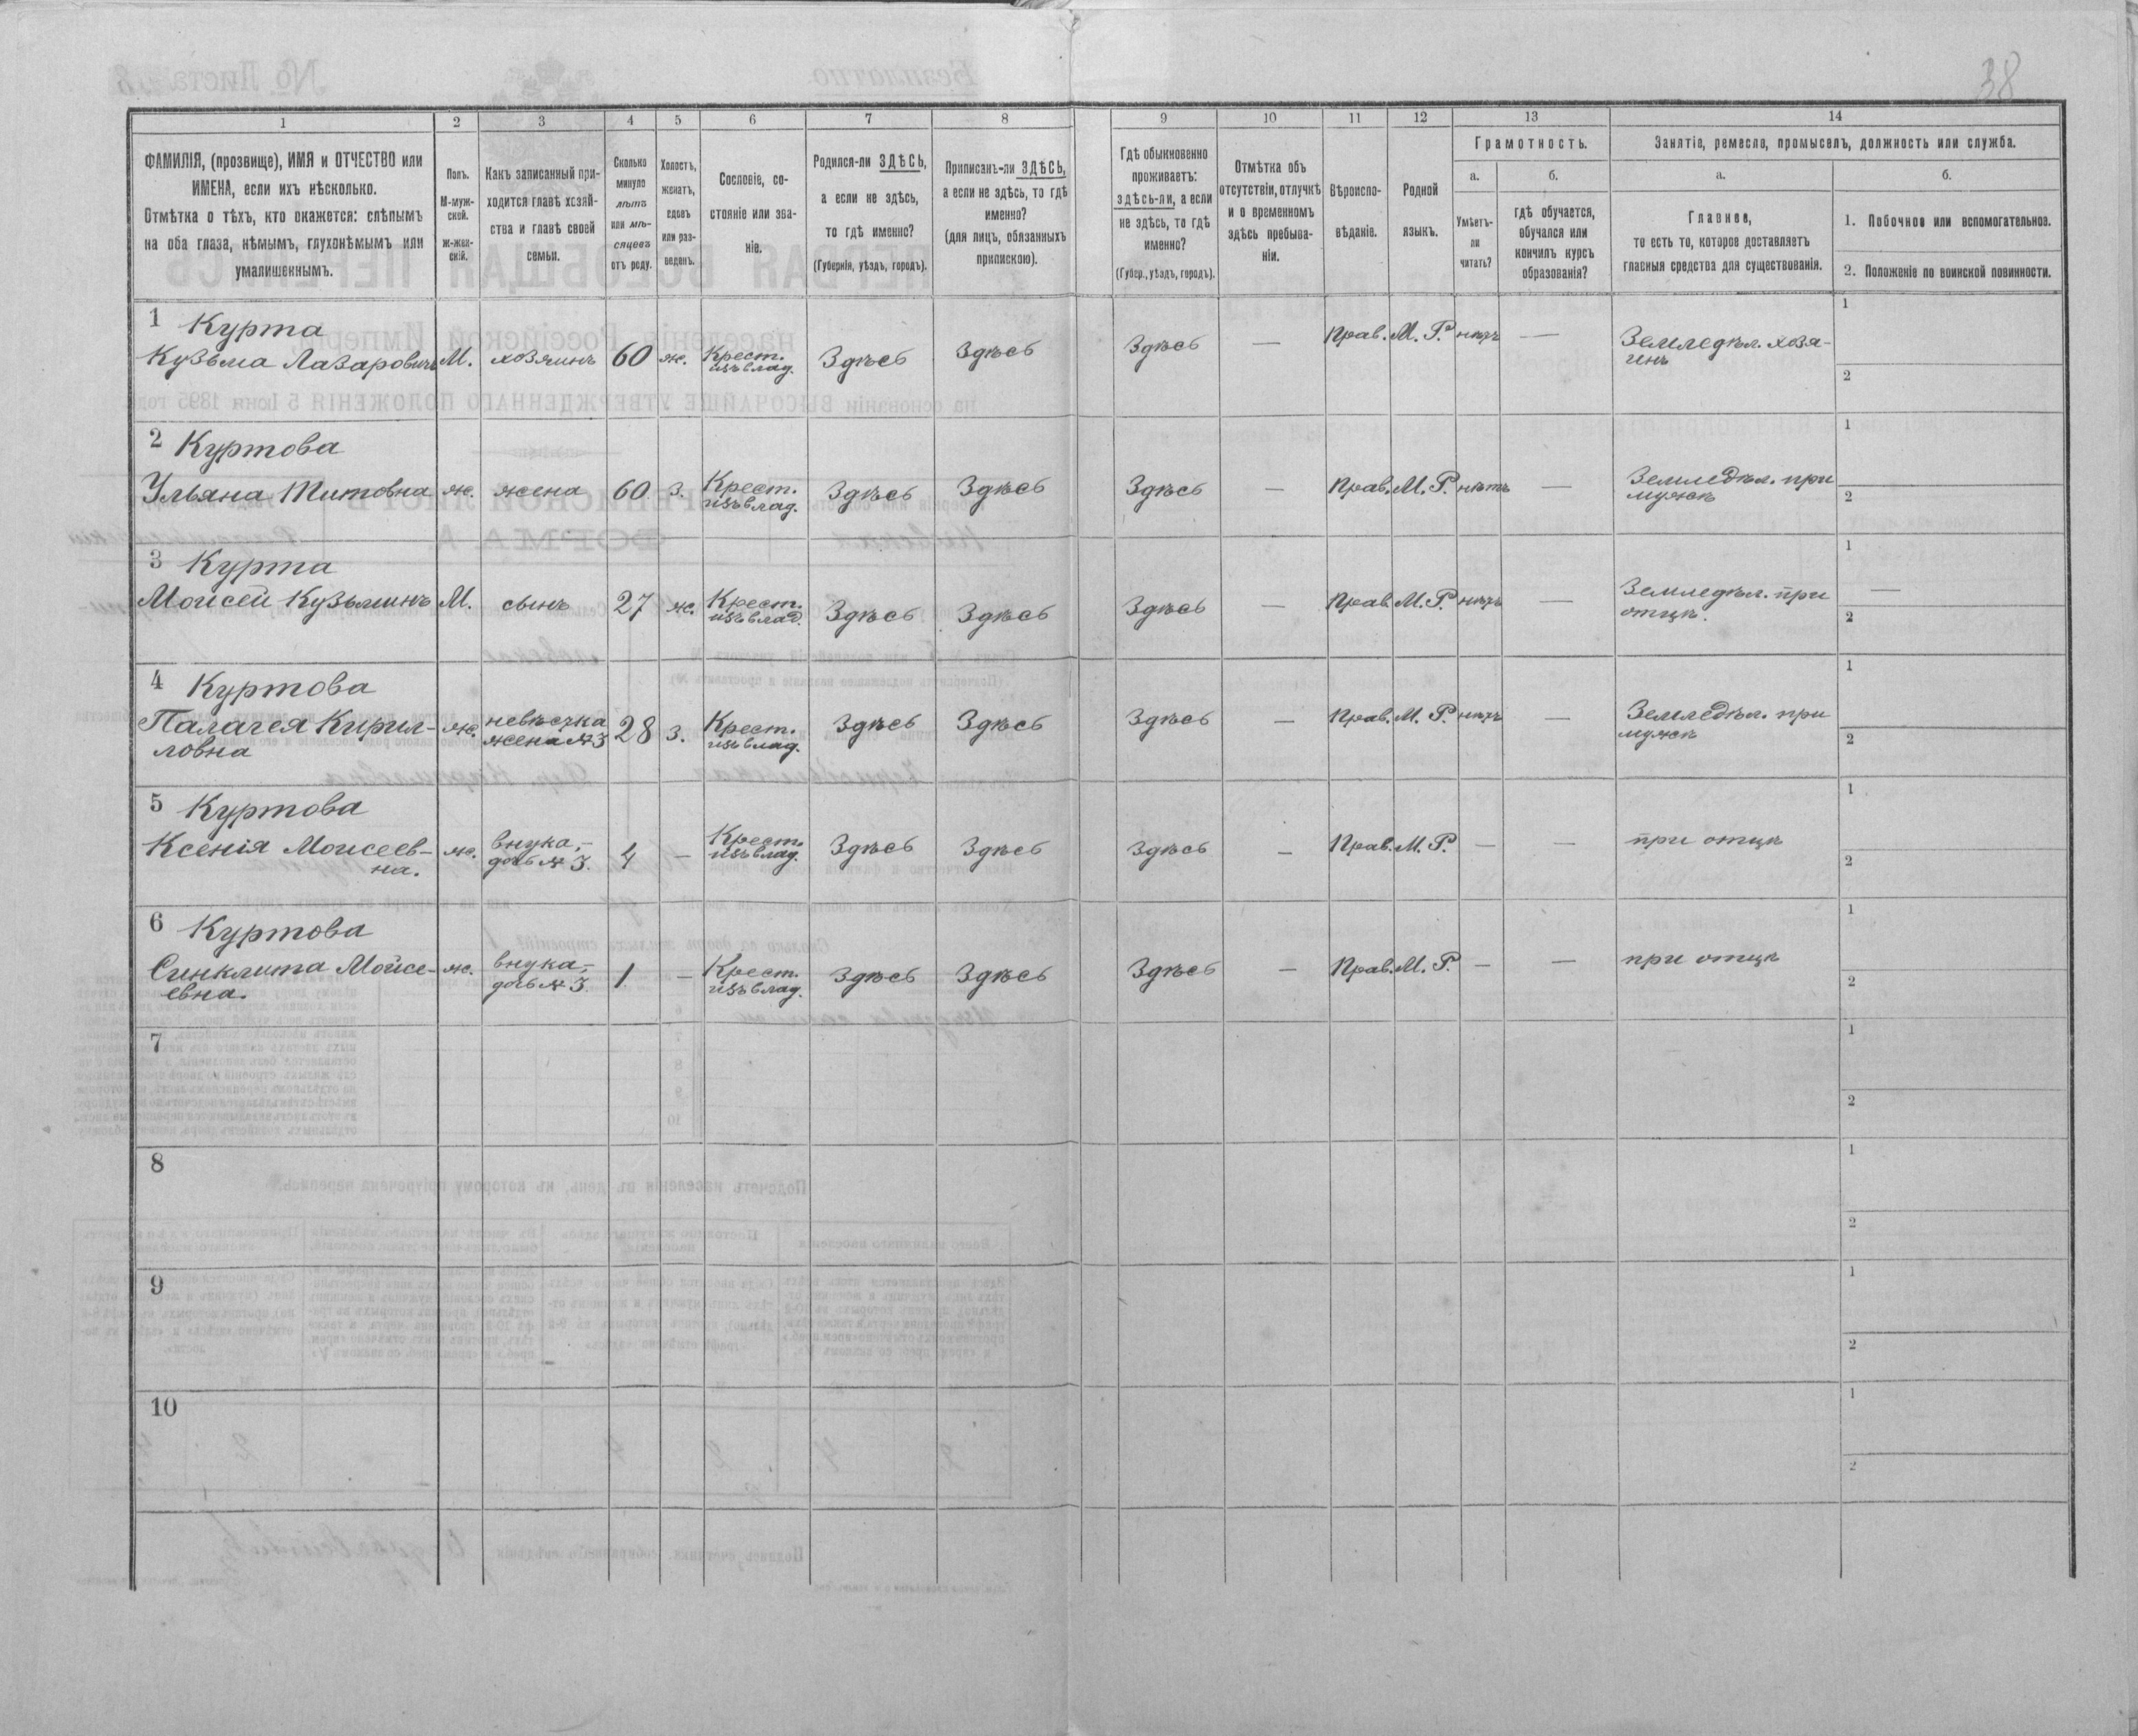 38
1 2 3 4 5 6 7 8 9 10 11 12 13 14
ФАМИЛІЯ, (прозвище), ИМЯ и ОТЧЕСТВО или
ИМЕНА, если ихъ нѣсколько.
Отмѣтка о тѣхъ, кто окажется: слѣпымъ
на оба глаза, нѣмымъ, глухонѣмымъ или
умалишеннымъ.
Полъ.
М-муж-
ской.
Ж-жен-
скій.
Какъ записанный при-
ходится главѣ хозяй-
ства и главѣ своей
семьи.
Сколько
минуло
лѣтъ
или мѣ-
сяцевъ
отъ роду.
Холостъ,
женатъ,
вдовъ
или раз-
веденъ.
Сословіе, со-
стояніе или зва-
ніе.
Родился-ли ЗДѢСЬ,
а если не здѣсь,
то гдѣ именно?
(Губернія, уѣздъ, городъ).
Приписанъ-ли ЗДѢСЬ,
а если не здѣсь, то гдѣ
именно?
(для лицъ, обязанныхъ
припискою).
Гдѣ обыкновенно
проживаетъ:
здѣсь-ли, а если
не здѣсь, то гдѣ
именно?
(Губер., уѣздъ, городъ).
Отмѣтка объ
отсутствіи, отлучкѣ
и о временномъ
здѣсь пребыва-
ніи.
Вѣроиспо-
вѣданіе.
Родной
языкъ.
Грамотность.
а.
Умѣетъ-
ли
читать?
б.
гдѣ обучается,
обучался или
кончилъ курсъ
образованія?
Занятіе, ремесло, промыселъ, должность или служба.
а.
Главное,
то есть то, которое доставляетъ
главныя средства для существованія.
б.
1. Побочное или вспомогательное.
2. Положеніе по воинской повинности.
1 Курта
Кузьма Лазаровичъ М. хозяинъ 60 ж. Крест. Здѣсь Здѣсь Здѣсь — Прав. М. Р. нѣтъ — Земледѣл. хозя- 1
изъ влад. инъ 2
2 Куртова
Ульяна Титовна ж. жена 60 з. Крест. Здѣсь Здѣсь Здѣсь — Прав. М. Р. нѣтъ — Земледѣл. при 1
изъ влад. мужѣ 2
3 Курта
Моисей Кузьминъ М. сынъ 27 ж. Крест. Здѣсь Здѣсь Здѣсь — Прав. М. Р. нѣтъ — Земледѣл. при 1 —
изъ влад. отцѣ. 2
4 Куртова
Палагея Кирил- ж. невѣстка 28 з. Крест. Здѣсь Здѣсь Здѣсь — Прав. М. Р. нѣтъ — Земледѣл. при 1
ловна жена №3 изъ влад. мужѣ 2
5 Куртова
Ксенія Моисеев- ж. внука, 4 — Крест. Здѣсь Здѣсь Здѣсь — Прав. М. Р. — — при отцѣ 1
на. дочь №3. изъ влад. 2
6 Куртова
Синклита Моисе- ж. внука, 1 — Крест. Здѣсь Здѣсь Здѣсь — Прав. М. Р. — — при отцѣ 1
евна. дочь №3 изъ влад. 2
7 1
2
8 1
2
9 1
2
10 1
2